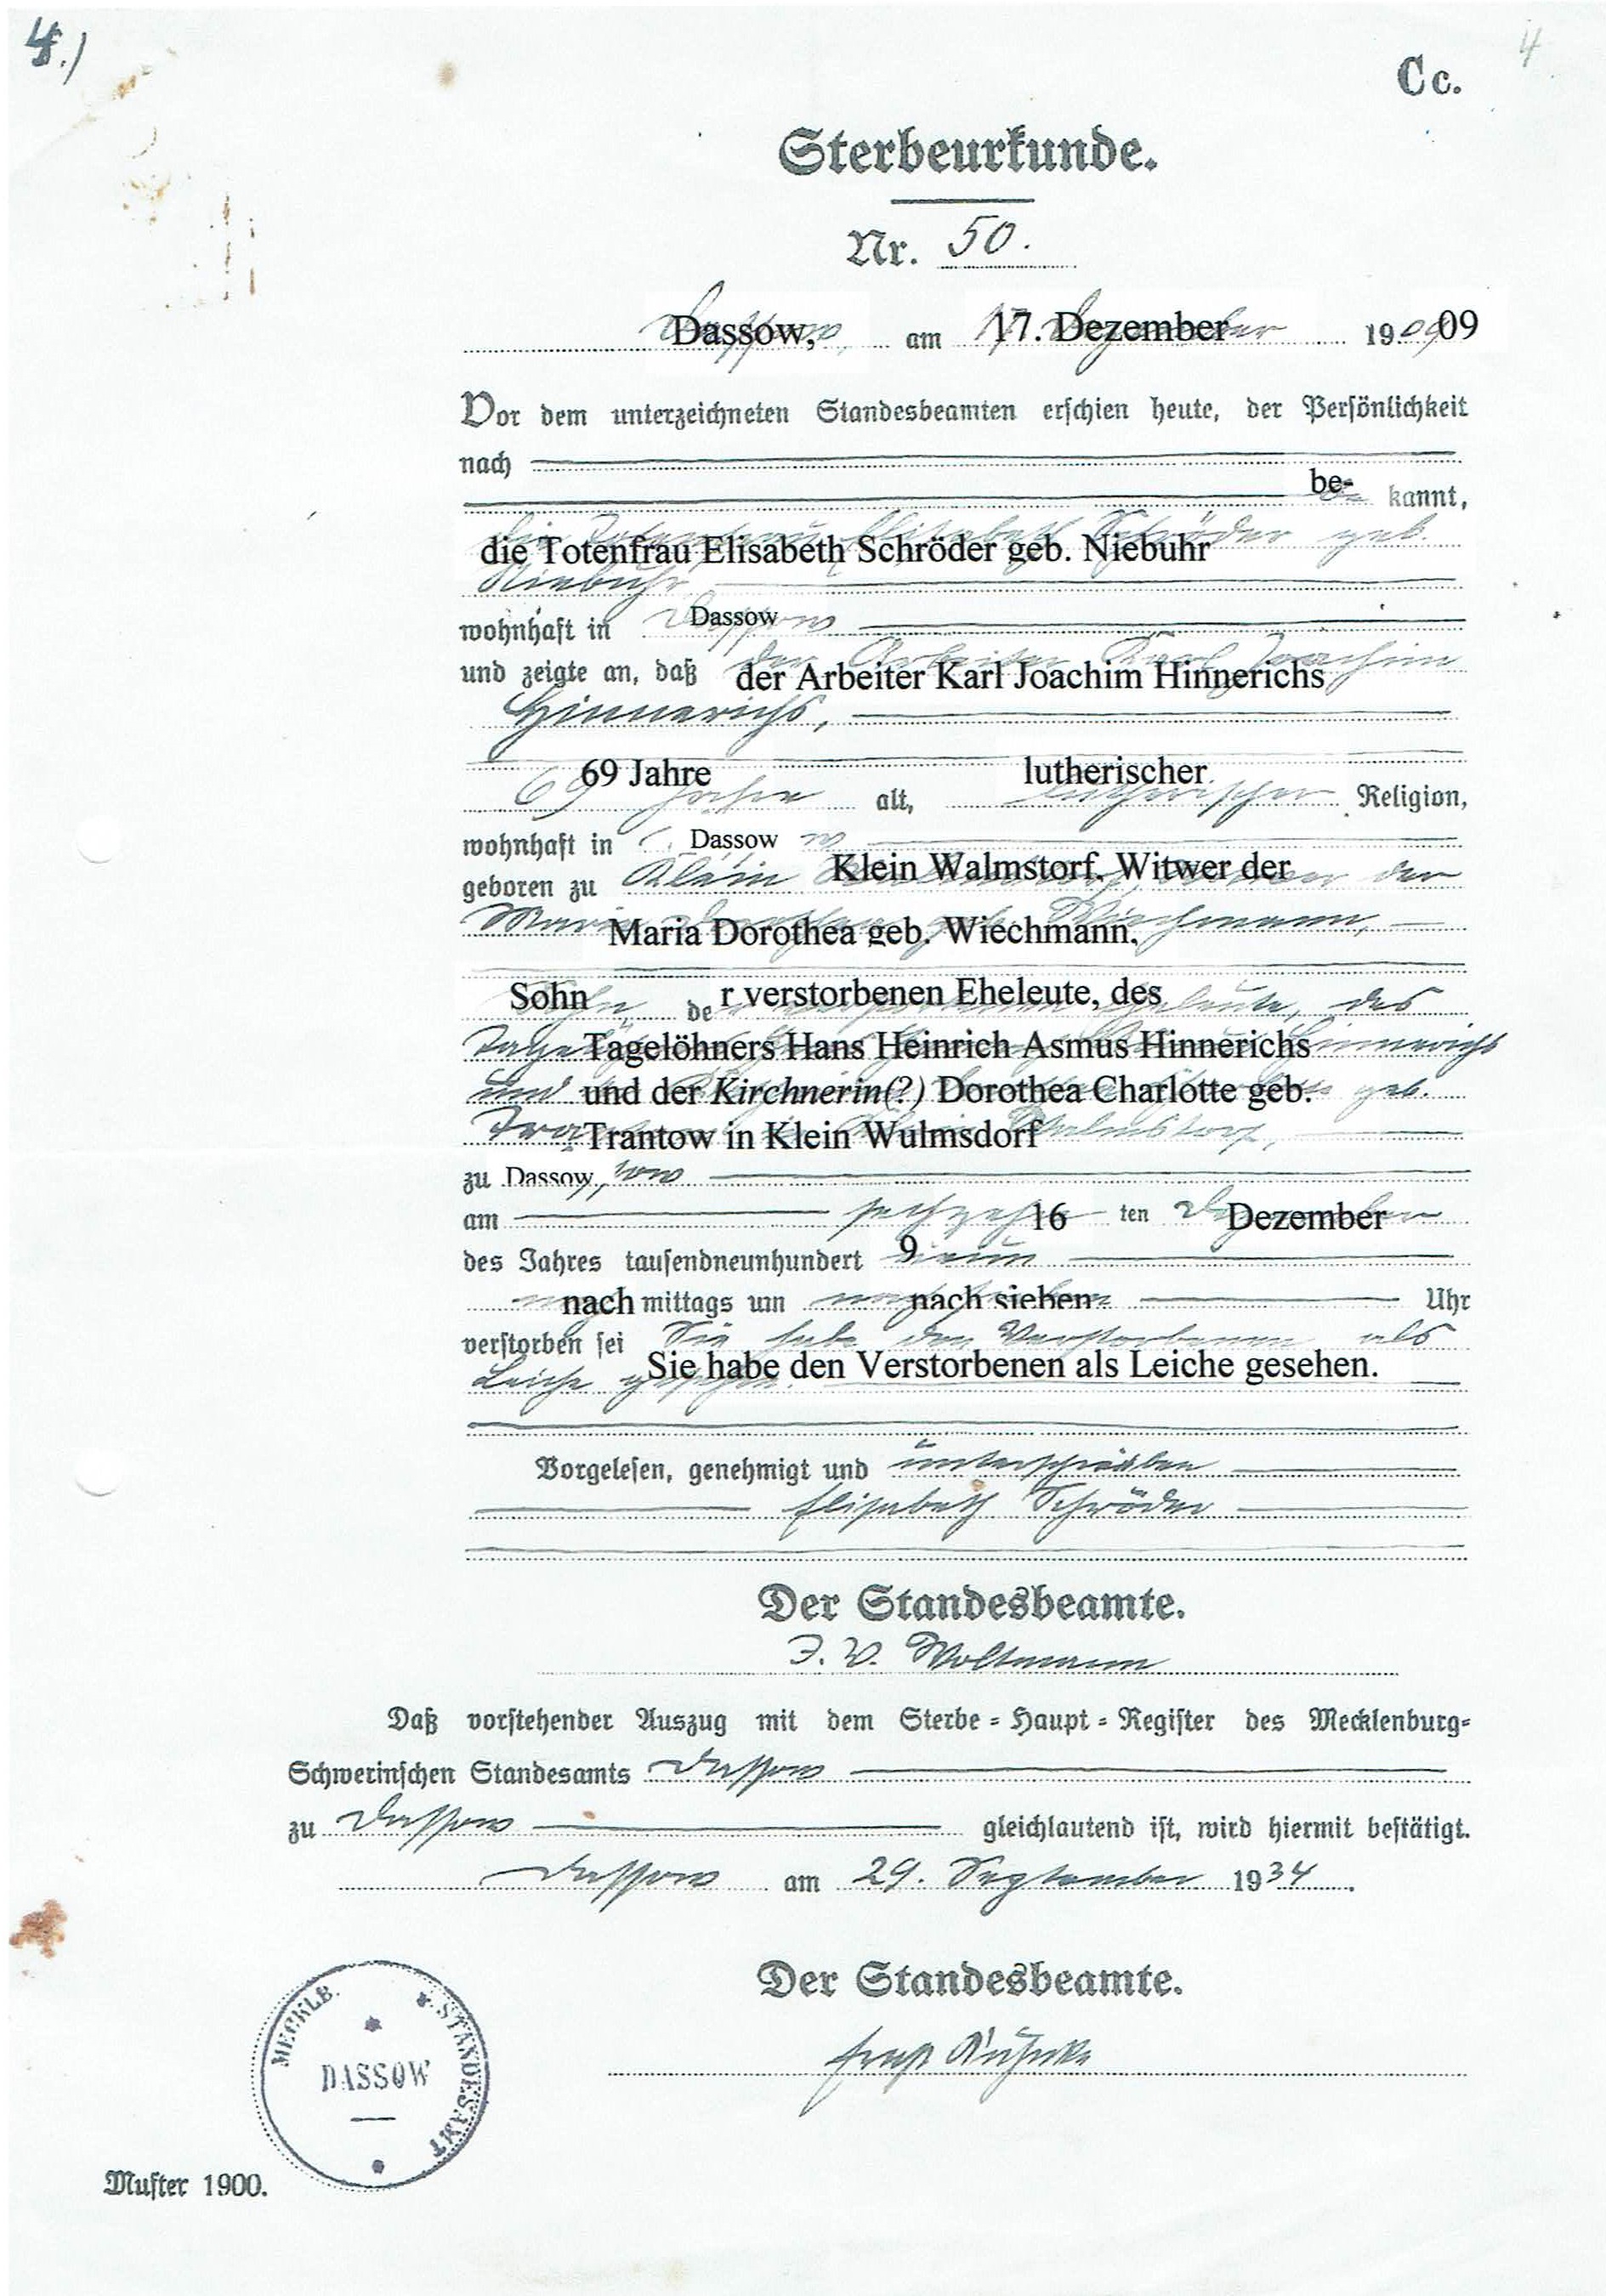 4.)
4
Cc.
Sterbeurkunde.
Nr. 50.
Dassow, am 17. Dezember 1909 09
Vor dem unterzeichneten Standesbeamten erschien heute, der Persönlichkeit
nach
be- kannt,
die Totenfrau Elisabeth Schröder geb. Niebuhr
Niebuhr
wohnhaft in Dassow
und zeigte an, daß der Arbeiter Karl Joachim Hinnerichs
Hinnerichs,
69 Jahre alt, lutherischer Religion,
wohnhaft in Dassow
geboren zu Klein Walmstorf, Witwer der
Maria Dorothea geb. Wiechmann,
Sohn der verstorbenen Eheleute, des
Tagelöhners Hans Heinrich Asmus Hinnerichs
und der Kirchnerin(?) Dorothea Charlotte geb.
Trantow in Klein Wulmsdorf
zu Dassow,
am 16 ten Dezember
des Jahres tausendneunhundert 9 neun
nach mittags um nach sieben Uhr
verstorben sei Sie habe den Verstorbenen als
Leiche Sie habe den Verstorbenen als Leiche gesehen.
Vorgelesen, genehmigt und unterschrieben
Elisabeth Schröder
Der Standesbeamte.
J. V. Woltmann
Daß vorstehender Auszug mit dem Sterbe-Haupt-Register des Mecklenburg-
Schwerinschen Standesamts Dassow
zu Dassow gleichlautend ist, wird hiermit bestätigt.
Dassow am 29. September 1934.
Der Standesbeamte.
MECKLB. STANDESAMT
DASSOW
Muster 1900.